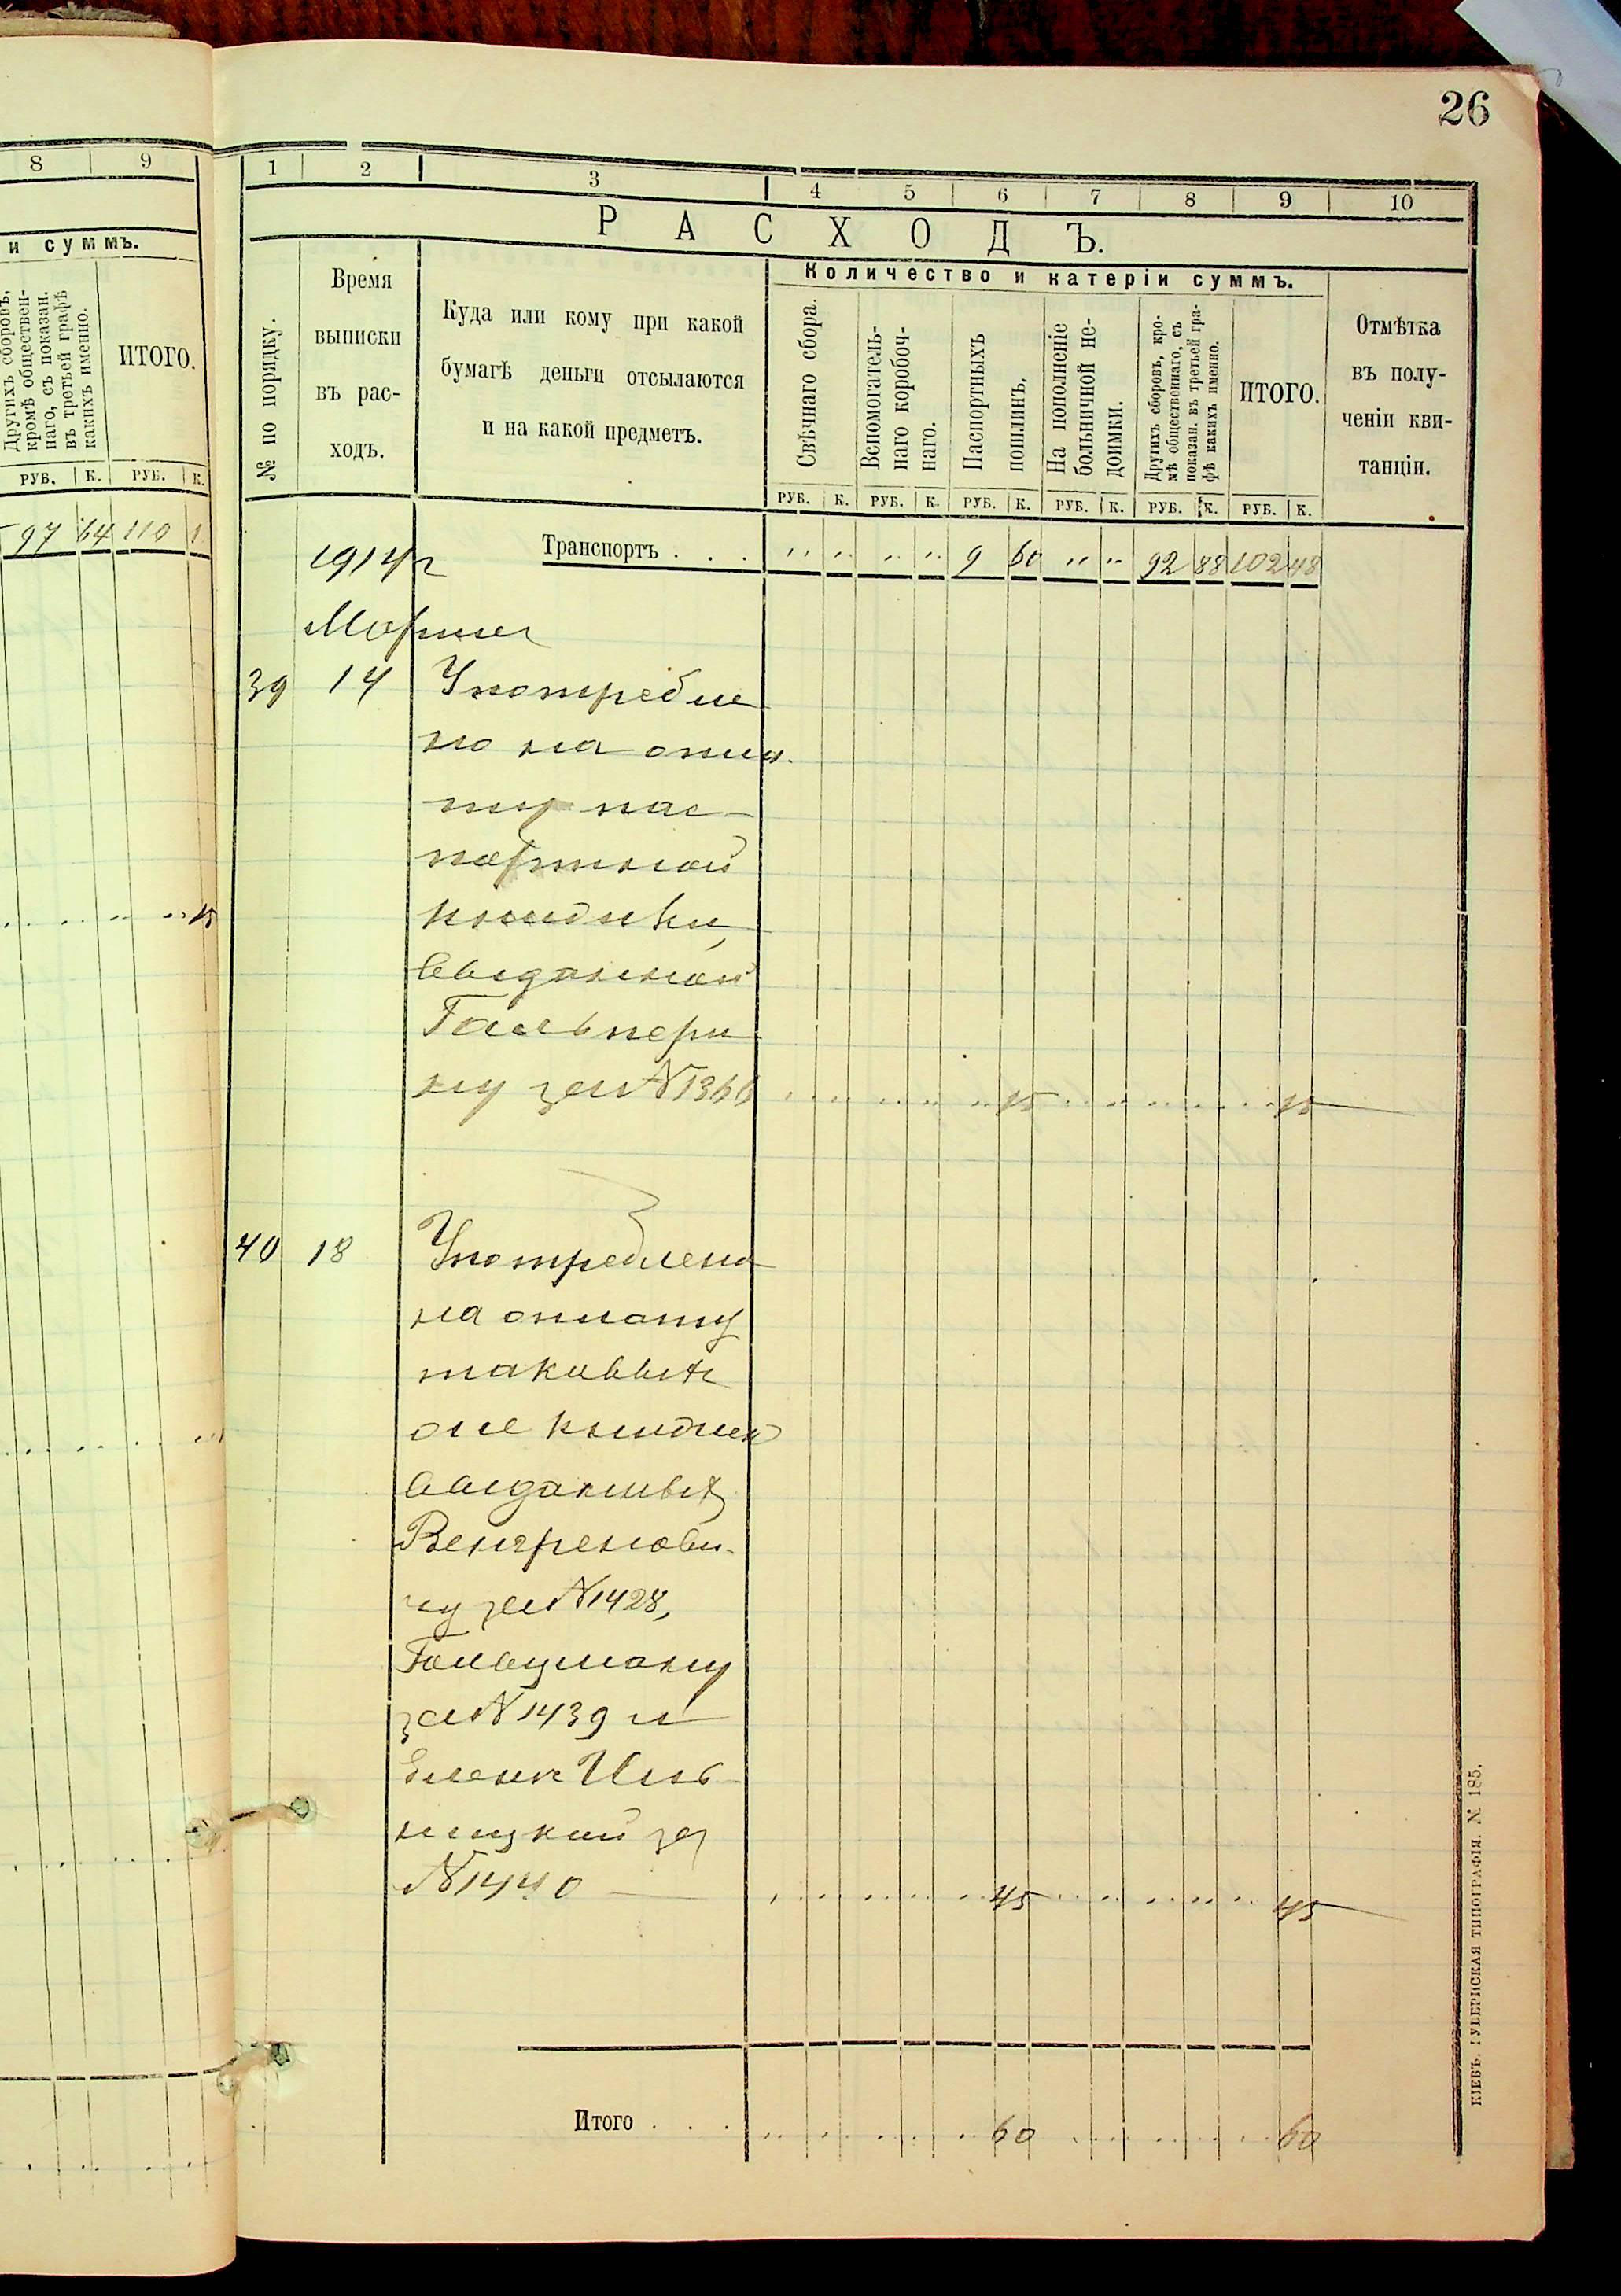 26
8 9
и суммъ.
Другихъ сборовъ,
кромѣ обществен-
наго, съ показан.
въ третьей графѣ
какихъ именно.
ИТОГО.
РУБ. К. РУБ. К.
97 64 110
15
1 2 3 4 5 6 7 8 9 10
РАСХОДЪ.
№ по порядку.
Время
выписки
въ рас-
ходъ.
Куда или кому при какой
бумагѣ деньги отсылаются
и на какой предметъ.
Количество и катеріи суммъ.
Свѣчнаго сбора.
Вспомогатель-
наго коробоч-
наго.
Паспортныхъ
пошлинъ.
На пополненіе
больничной не-
доимки.
Другихъ сборовъ, кро-
мѣ общественнаго, съ
показан. въ третьей гра-
фѣ какихъ именно.
ИТОГО.
Отмѣтка
въ полу-
ченіи кви-
танціи.
РУБ. К. РУБ. К. РУБ. К. РУБ. К. РУБ. К. РУБ. К.
1914 г Транспортъ . . . " " " " 9 60 " " 92 88 102 48
Марта
39 14 Употребле
но на опла
ту пас-
портной
книжки,
выданной
Гальпери
ну за № 1366 15 15
40 18 Употреблено
на оплату
таковыхъ
же книжекъ
выданныхъ
Венгренови-
чу за № 1428,
Гольцману
за № 1439 и
Иль
ницкой за
№ 1440 45 45
Итого . . . 60 60
КІЕВЪ. ГУБЕРНСКАЯ ТИПОГРАФІЯ. № 185.